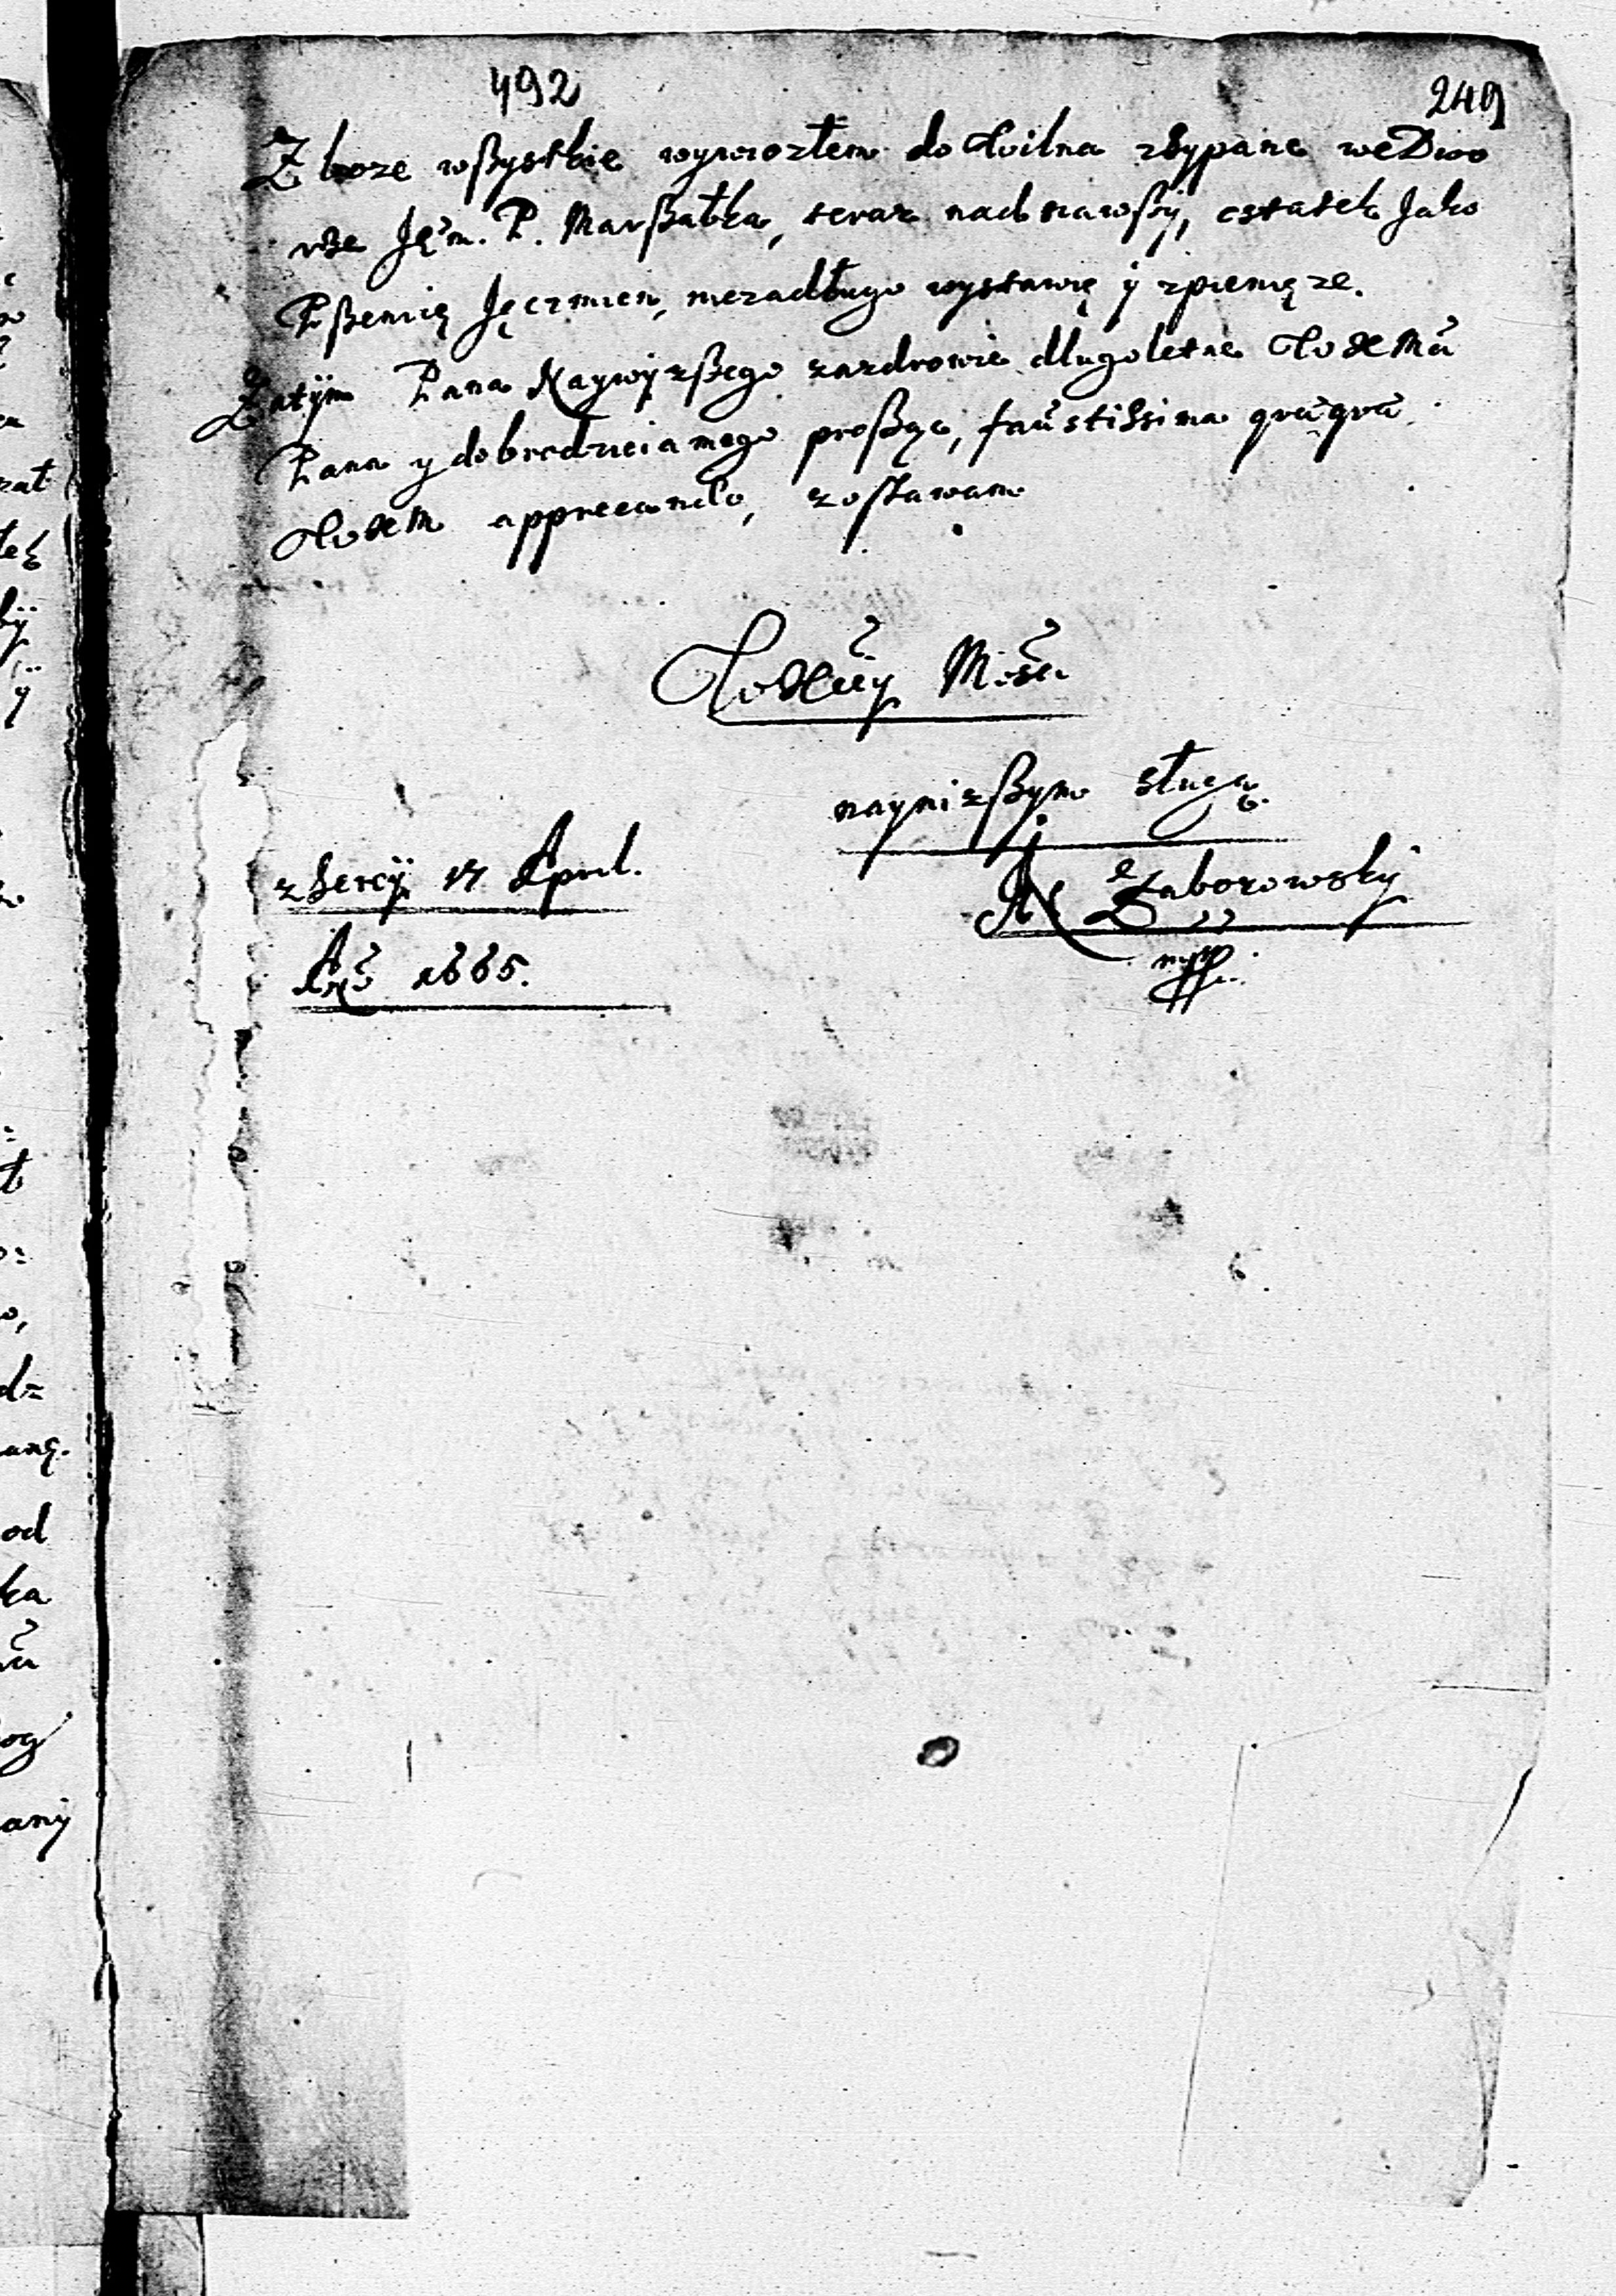 492
249
Zboze wßystkie wywiozłem do Wilna zsypane we Dwo
rze Jęm. P. Marßałka, teraz nad nawßy, ostatek Jako
Pßenicę Jęczmien, niezadługo wystawię ÿ zpienięze.
Zatÿm Pana Naywÿzßego zazdrowie długoletne WoXeMa
Pana y dobrodzieia mego proßąc, faŭstissima qŭaqŭa
WoXeM apprecando, zostawam
WoXeŭy Mosci
nayniszßym sługą
N Zaborowsky
mpp
z Sercÿ 17 April.
Ano 1665.